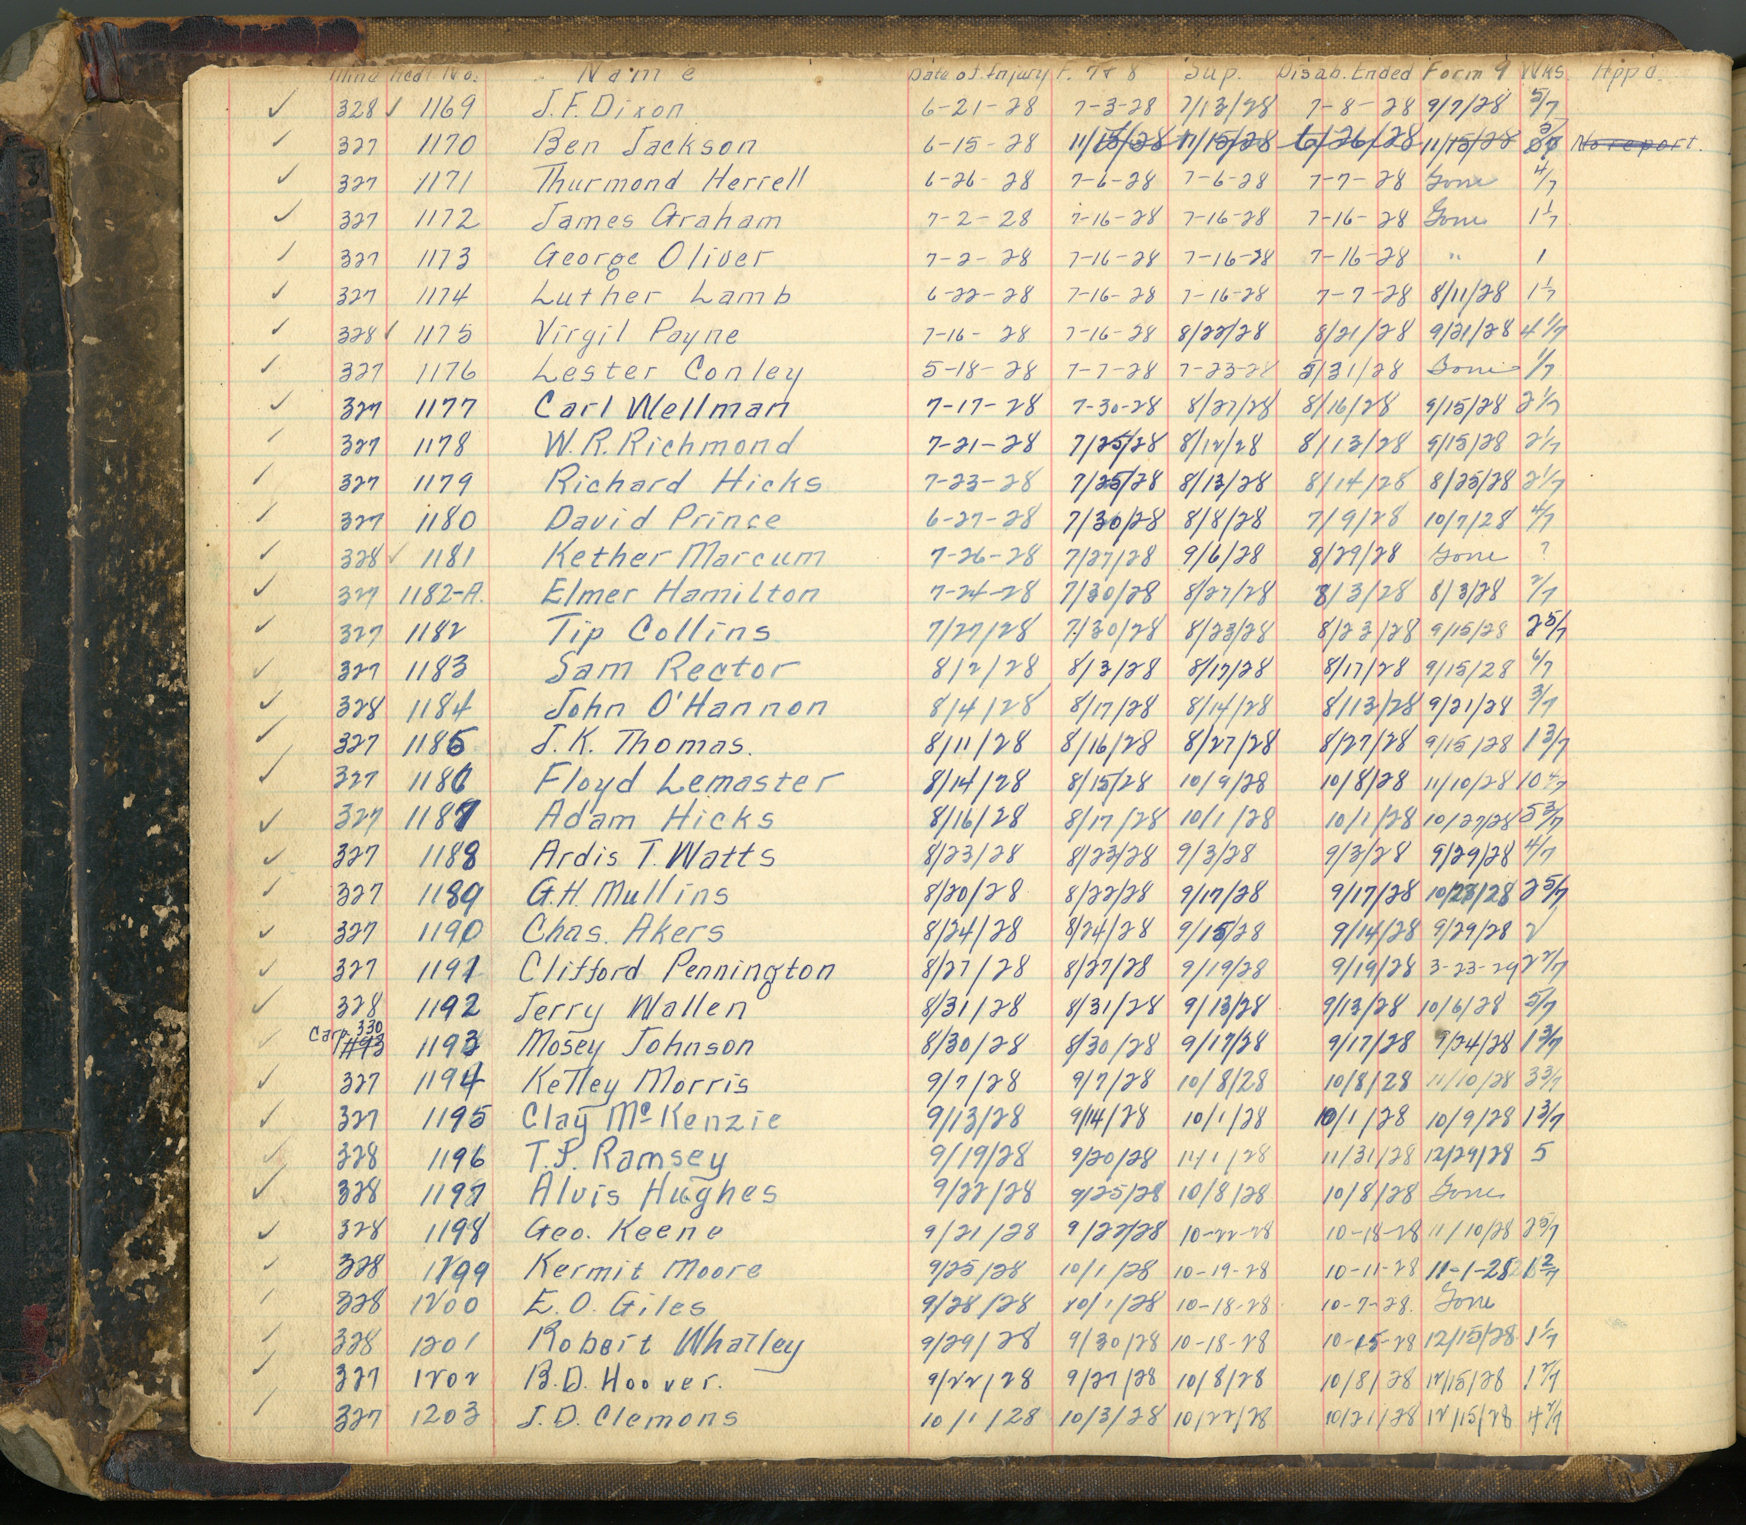 Mine Acdt. No. Name Date of Injury F. 7 & 8 Sup. Disab. Ended Form 9 Wks. App'd.
✓ 328 ✓ 1169 J. F. Dixon 6-21-28 7-3-28 7/13/28 7-8-28 9/7/28 5/7
✓ 327 1170 Ben Jackson 6-15-28 11/15/28 11/15/28 6/26/28 11/15/28 No report.
✓ 327 1171 Thurmond Herrell 6-26-28 7-6-28 7-6-28 7-7-28 Gone 4/7
✓ 327 1172 James Graham 7-2-28 7-16-28 7-16-28 7-16-28 Gone 1 1/7
✓ 327 1173 George Oliver 7-2-28 7-16-28 7-16-28 7-16-28 " 1
✓ 327 1174 Luther Lamb 6-22-28 7-16-28 7-16-28 7-7-28 8/11/28 1 1/7
✓ 328 ✓ 1175 Virgil Payne 7-16-28 7-16-28 8/22/28 8/21/28 9/21/28 4 1/7
✓ 327 1176 Lester Conley 5-18-28 7-7-28 7-23-28 5/31/28 Gone 1/7
✓ 327 1177 Carl Wellman 7-17-28 7-30-28 8/27/28 8/16/28 9/15/28 2 1/7
✓ 327 1178 W. R. Richmond 7-21-28 7/25/28 8/12/28 8/13/28 9/15/28 2 1/7
✓ 327 1179 Richard Hicks 7-23-28 7/25/28 8/13/28 8/14/28 8/25/28 2 1/7
✓ 327 1180 David Prince 6-27-28 7/30/28 8/8/28 7/9/28 10/7/28 4/7
✓ 328 ✓ 1181 Kether Marcum 7-26-28 7/27/28 9/6/28 8/29/28 Gone ?
✓ 327 1182-A. Elmer Hamilton 7-24-28 7/30/28 8/27/28 8/3/28 8/3/28 2/7
✓ 327 1182 Tip Collins 7/27/28 7/30/28 8/23/28 8/23/28 9/15/28 2 5/7
✓ 327 1183 Sam Rector 8/2/28 8/3/28 8/17/28 8/17/28 9/15/28 6/7
✓ 328 1184 John O'Hannon 8/4/28 8/17/28 8/14/28 8/13/28 9/21/28 3/7
✓ 327 1185 J. K. Thomas. 8/11/28 8/16/28 8/27/28 8/27/28 9/15/28 1 3/7
✓ 327 1186 Floyd Lemaster 8/14/28 8/15/28 10/9/28 10/8/28 11/10/28 10 4/7
✓ 327 1187 Adam Hicks 8/16/28 8/17/28 10/1/28 10/1/28 10/27/28 5 3/7
✓ 327 1188 Ardis T. Watts 8/23/28 8/23/28 9/3/28 9/3/28 9/29/28 4/7
✓ 327 1189 G. H. Mullins 8/20/28 8/22/28 9/17/28 9/17/28 10/23/28 2 5/7
✓ 327 1190 Chas. Akers 8/24/28 8/24/28 9/15/28 9/14/28 9/29/28 2
✓ 327 1191 Clifford Pennington 8/27/28 8/27/28 9/19/28 9/19/28 3-23-29 2 2/7
✓ 328 1192 Jerry Wallen 8/31/28 8/31/28 9/13/28 9/13/28 10/6/28 5/7
✓ Carp. 330 1193 1193 Mosey Johnson 8/30/28 8/30/28 9/17/28 9/17/28 9/24/28 1 3/7
✓ 327 1194 Ketley Morris 9/7/28 9/7/28 10/8/28 10/8/28 11/10/28 3 3/7
✓ 327 1195 Clay McKenzie 9/13/28 9/14/28 10/1/28 10/1/28 10/9/28 1 3/7
✓ 328 1196 T. P. Ramsey 9/19/28 9/20/28 11/1/28 11/31/28 12/29/28 5
✓ 328 1197 Alvis Hughes 9/22/28 9/25/28 10/8/28 10/8/28 Gone
✓ 328 1198 Geo. Keene 9/21/28 9/22/28 10-22-28 10-18-28 11/10/28 2 5/7
✓ 328 1199 Kermit Moore 9/25/28 10/1/28 10-19-28 10-11-28 11-1-28
✓ 328 1200 E. O. Giles 9/28/28 10/1/28 10-18-28 10-7-28. Gone
✓ 328 1201 Robert Whatley 9/29/28 9/30/28 10-18-28 10-15-28 12/15/28 1 1/7
✓ 327 1202 B. D. Hoover. 9/22/28 9/27/28 10/8/28 10/8/28 12/15/28 1 2/7
✓ 327 1203 J. D. Clemons 10/1/28 10/3/28 10/22/28 10/21/28 12/15/28 4 2/7